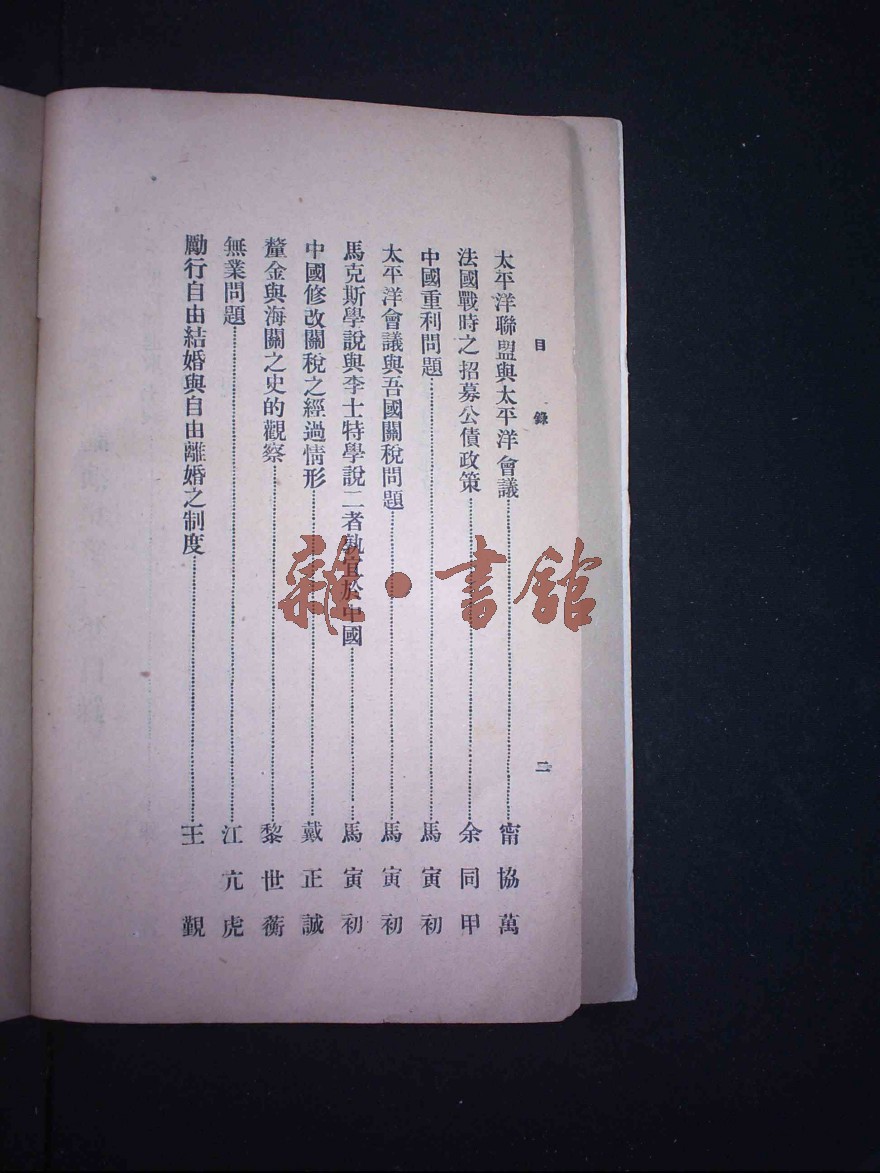 目錄
二
太平洋聯盟與太平洋會議……甯協萬
法國戰時之招募公債政策……余同甲
中國重利問題……馬寅初
太平洋會議與吾國關稅問題……馬寅初
馬克斯學說與李士特學說二者孰宜於中國……馬寅初
中國修改關稅之經過情形……戴正誠
釐金與海關之史的觀察……黎世蘅
無業問題……江亢虎
勵行自由結婚與自由離婚之制度……王覲
雜·書館